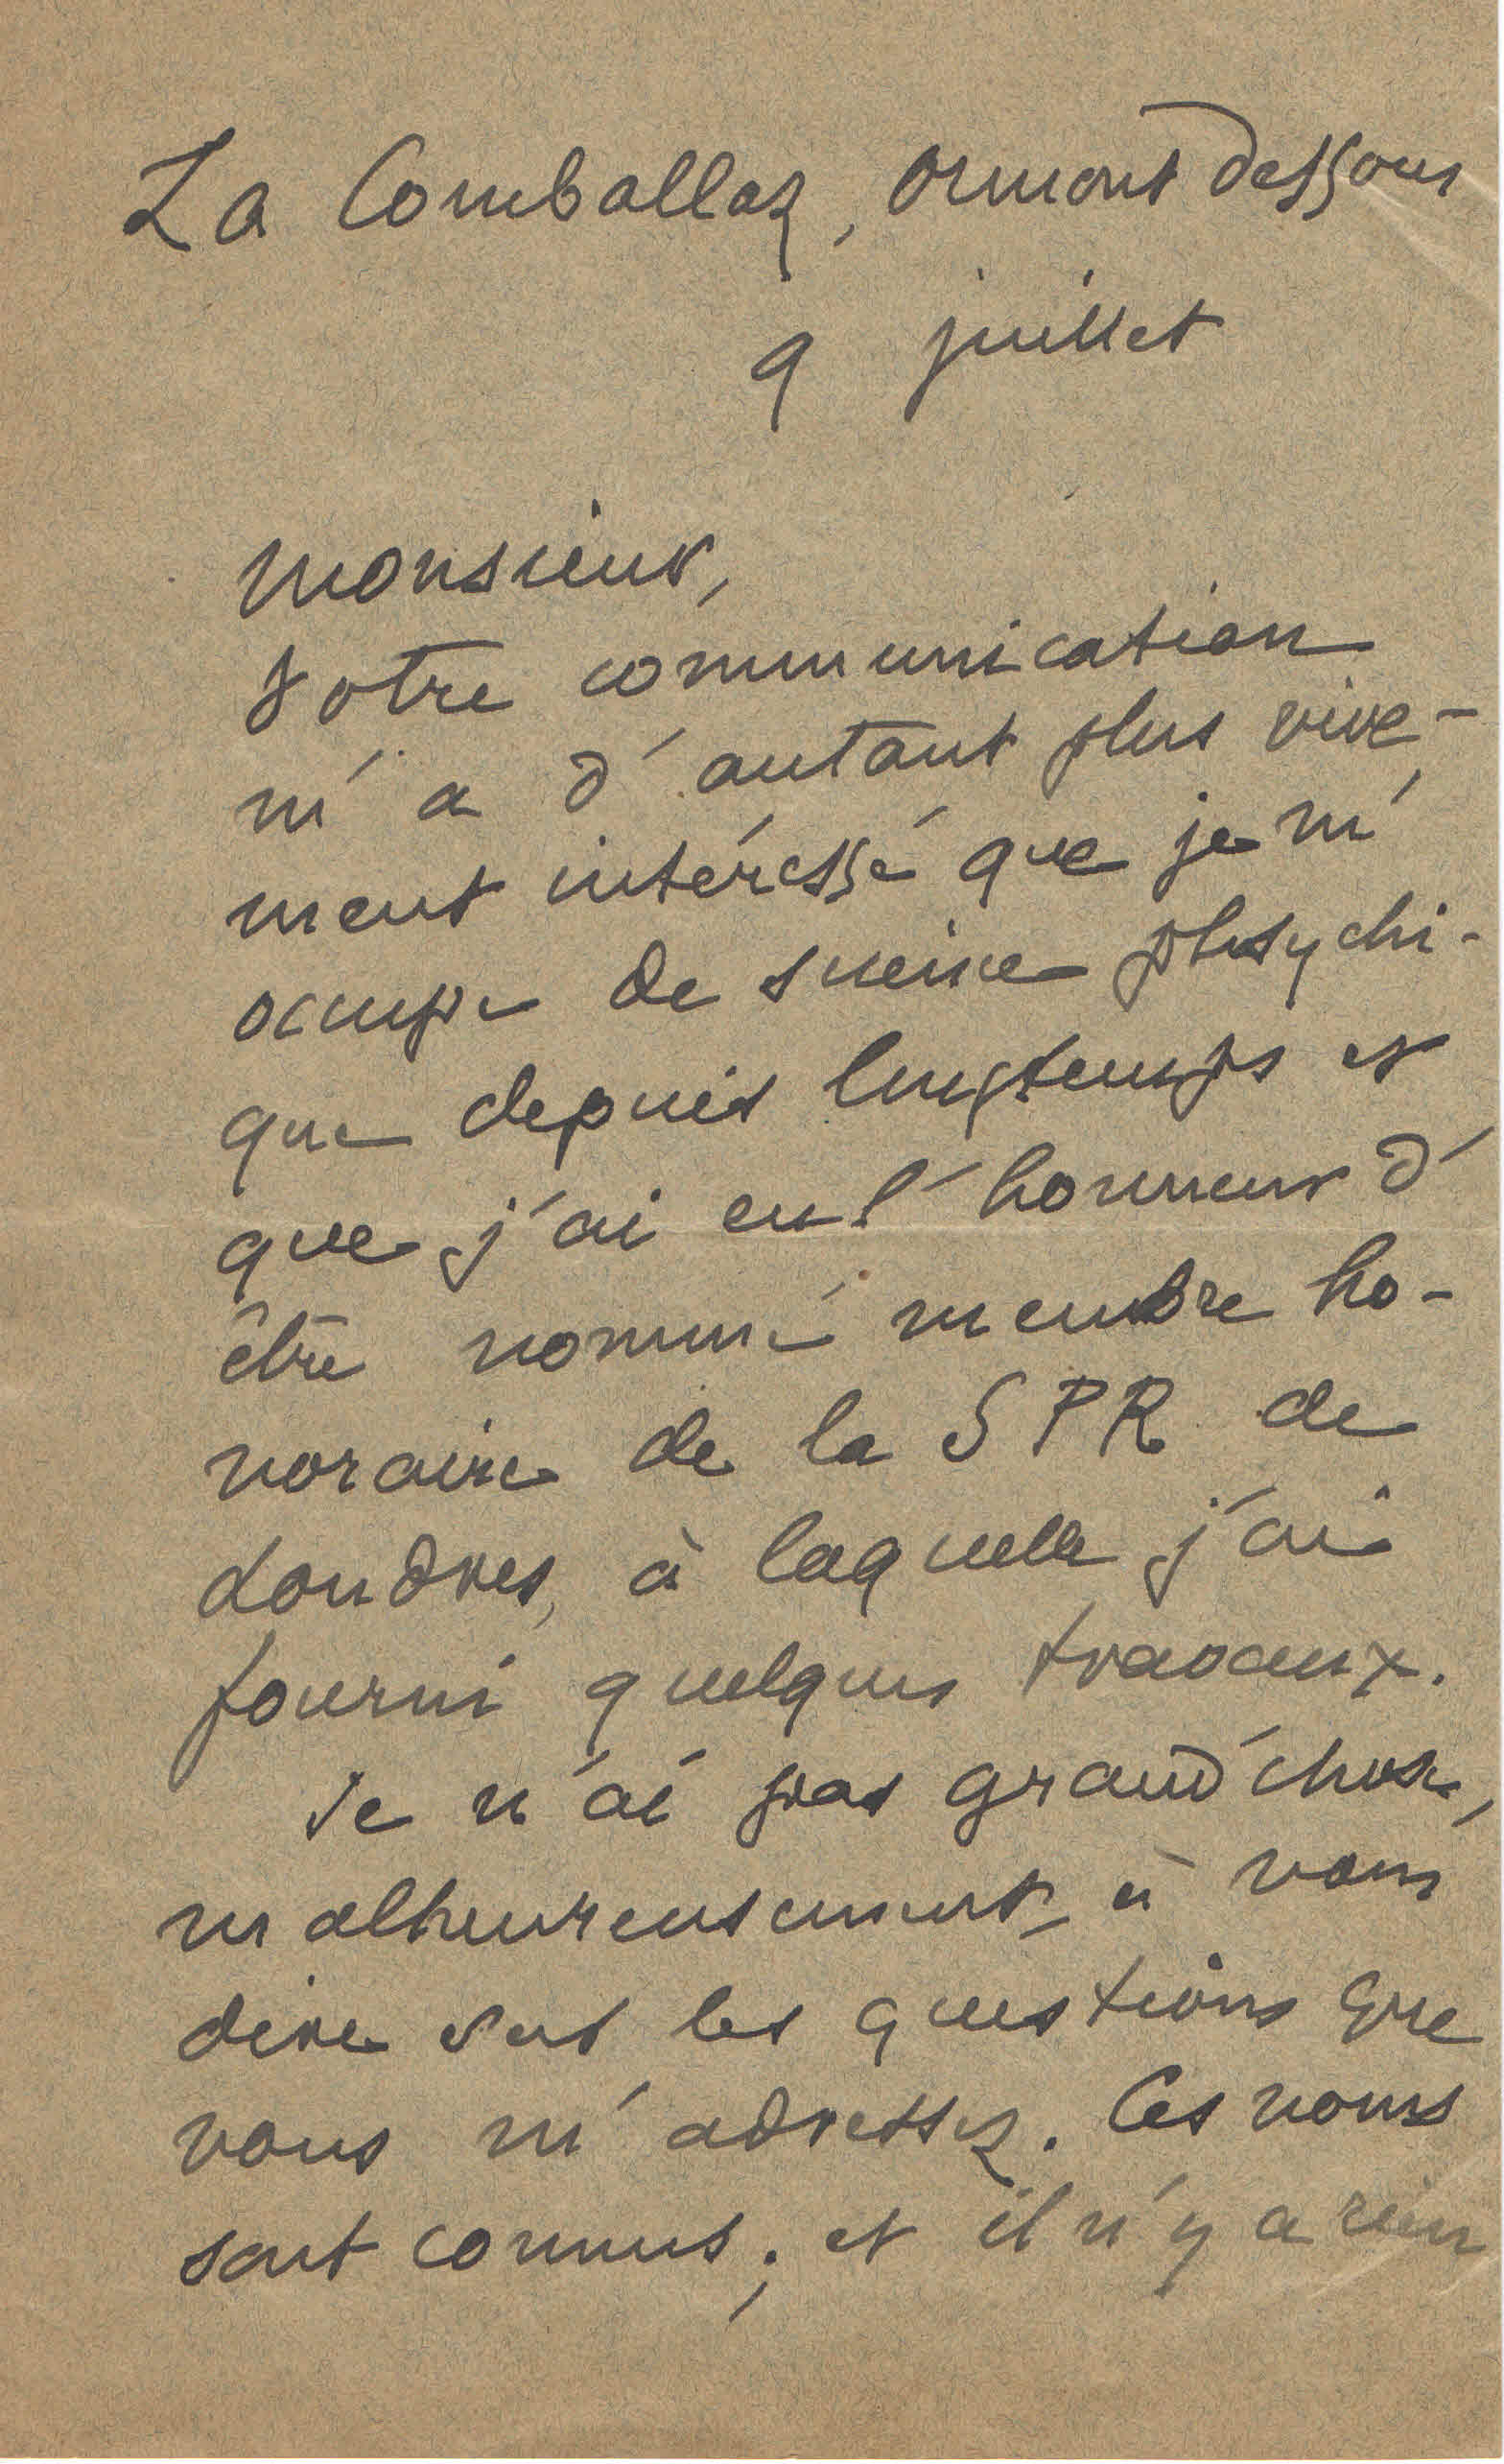 La Comballaz, Ormont dessous
9 juillet
Monsieur,
Votre communication
m'a d'autant plus vive-
ment intéressé que je m'
occupe de science phsychi-
que depuis longtemps et
que j'ai eu l'honneur d'
être nommé membre ho-
noraire de la SPR de
Londres, à laquelle j'ai
fourni quelques travaux.
Je n'ai pas grand'chose,
malheureusement, à vous
dire sur les questions que
vous m'adressez. Ces noms
sont connus ; et il n'y a rien